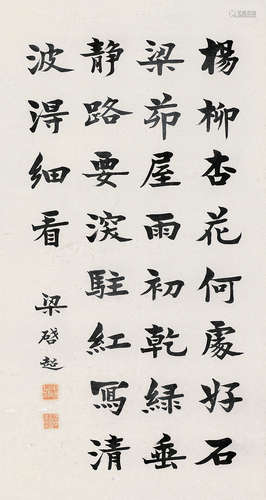 楊柳杏花何處好石
梁茆屋雨初乾綠垂
静路要深駐紅寫清
波得細看
梁啓超